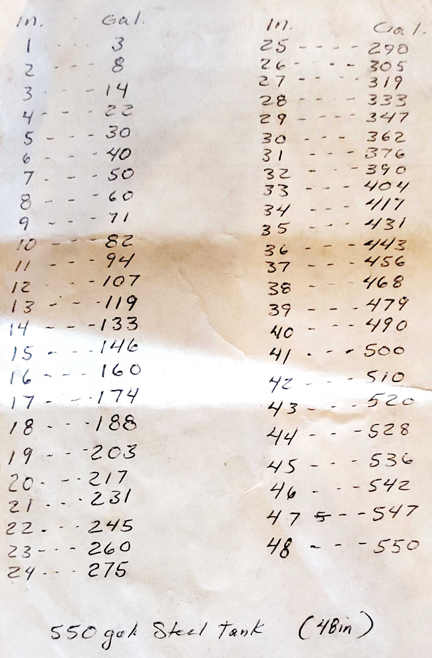 In. Gal.
1 - - - - 3
2 - - - 8
3 - - - - 14
4 - - - - 22
5 - - - - 30
6 - - - 40
7 - - - - 50
8 - - - 60
9 - - - 71
10 - - - - 82
11 - - - - 94
12 - - - - 107
13 - - - - 119
14 - - - - 133
15 - - - - 146
16 - - - 160
17 - - - - 174
18 - - - 188
19 - - - 203
20 - - - 217
21 - - - 231
22 - - - 245
23 - - - 260
24 - - - 275
In. Gal.
25 - - - - 290
26 - - - - 305
27 - - - 319
28 - - - 333
29 - - - - 347
30 - - - 362
31 - - - 376
32 - - - 390
33 - - - 404
34 - - - - 417
35 - - - - 431
36 - - - 443
37 - - - 456
38 - - - 468
39 - - - 479
40 - - - 490
41 - - - 500
42 - - - - 510
43 - - - - 520
44 - - - 528
45 - - - 536
46 - - - 542
47 - - - 547
48 - - - - 550
550 gal Steel Tank (48in)